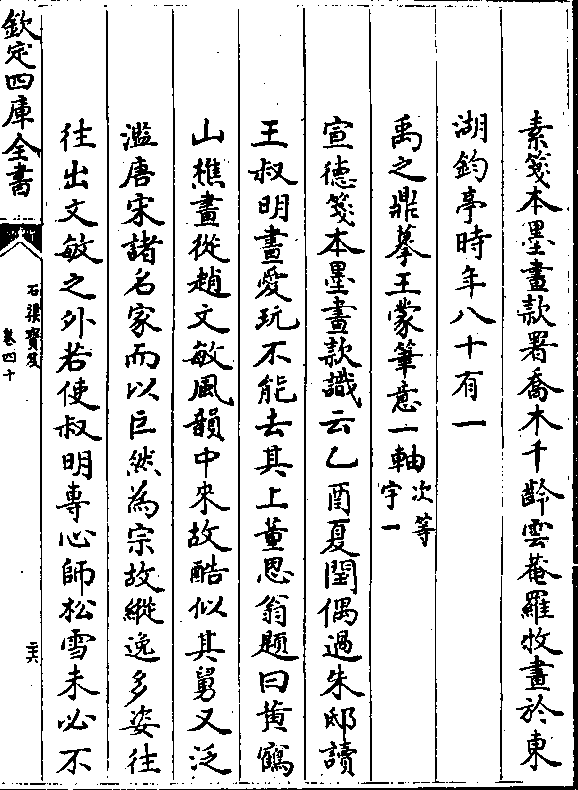 素箋本墨畫款署喬木千齡雲菴羅牧畫於東
湖釣亭時年八十有一
禹之鼎摹王蒙筆意一軸次等
宇一
宣德箋本墨畫款識云乙酉夏閏偶過朱邸讀
王叔明畫愛玩不能去其上董思翁題曰黄鶴
山樵畫從趙文敏風韻中來故酷似其舅又泛
濫唐宋諸名家而以巨然為宗故縱逸多姿往
往出文敏之外若使叔明專心師松雪未必不
欽定四庫全書
石渠寶笈
卷四十
二十六